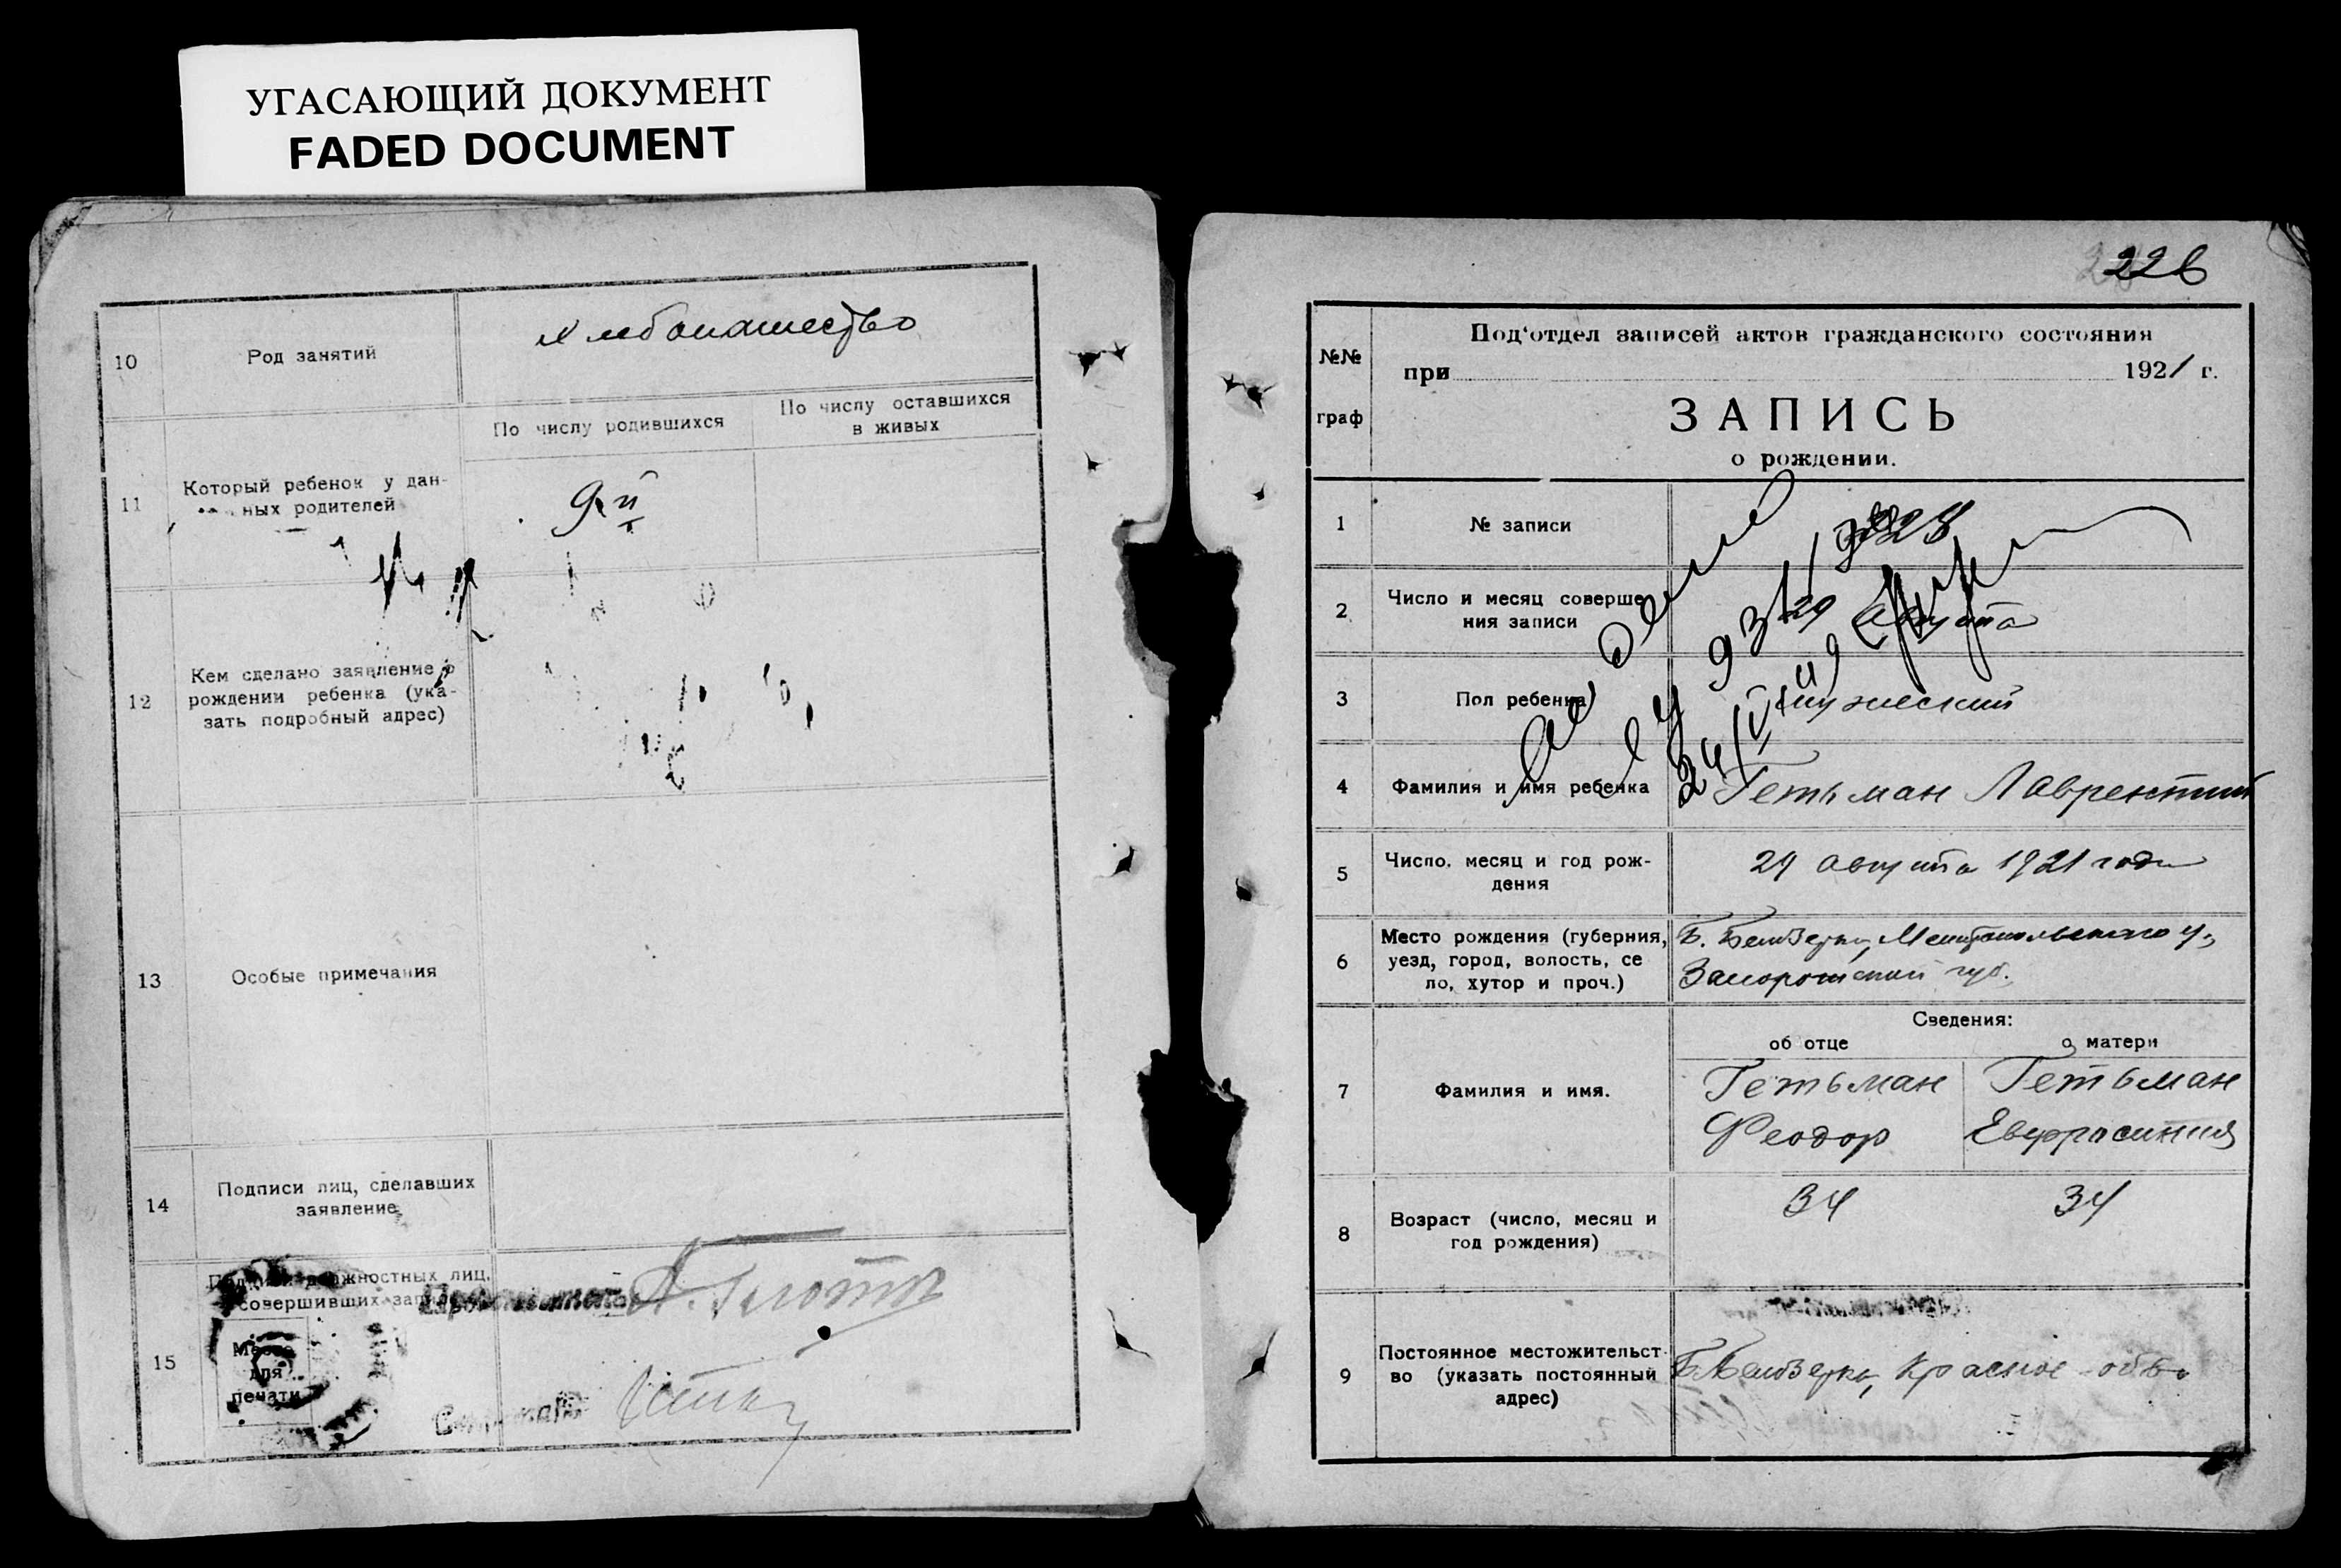 УГАСАЮЩИЙ ДОКУМЕНТ
FADED DOCUMENT
10
Род занятий
Хлебопашество
11
Который ребенок у дан-
ных родителей
По числу родившихся
По числу оставшихся
в живых
9й
12
Кем сделано заявление о
рождении ребенка (ука-
зать подробный адрес)
13
Особые примечания
14
Подписи лиц, сделавших
заявление
15
Подписи должностных лиц,
совершивших запись
Место
для
печати
Секретарь
226
№№
граф
Под'отдел записей актов гражданского состояния
при 1921 г.
ЗАПИСЬ
о рождении.
1
№ записи
2
Число и месяц соверше
ния записи
29 августа
3
Пол ребенка
мужеский
4
Фамилия и имя ребенка
Гетьман Лаврентий
5
Число, месяц и год рож-
дения
29 августа 1921 года
6
Место рождения (губерния,
уезд, город, волость, се
ло, хутор и проч.)
Б. Белозерка, Мелитопольского у.,
Запорожской губ.
Сведения:
об отце
о матери
7
Фамилия и имя.
Гетьман
Феодор
Гетьман
Евфросиния
8
Возраст (число, месяц и
год рождения)
34
34
9
Постоянное местожительст-
во (указать постоянный
адрес)
Б. Белозерка, Красное об-во